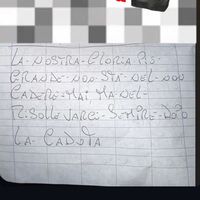 LA-NOSTRA-GLORIA PIÙ-
GRANDE-NON-STA-NEL-NON
CADERE-MAI, MA-NEL-
RISOLLEVARCI-SEMPRE-DOPO
LA-CADUTA